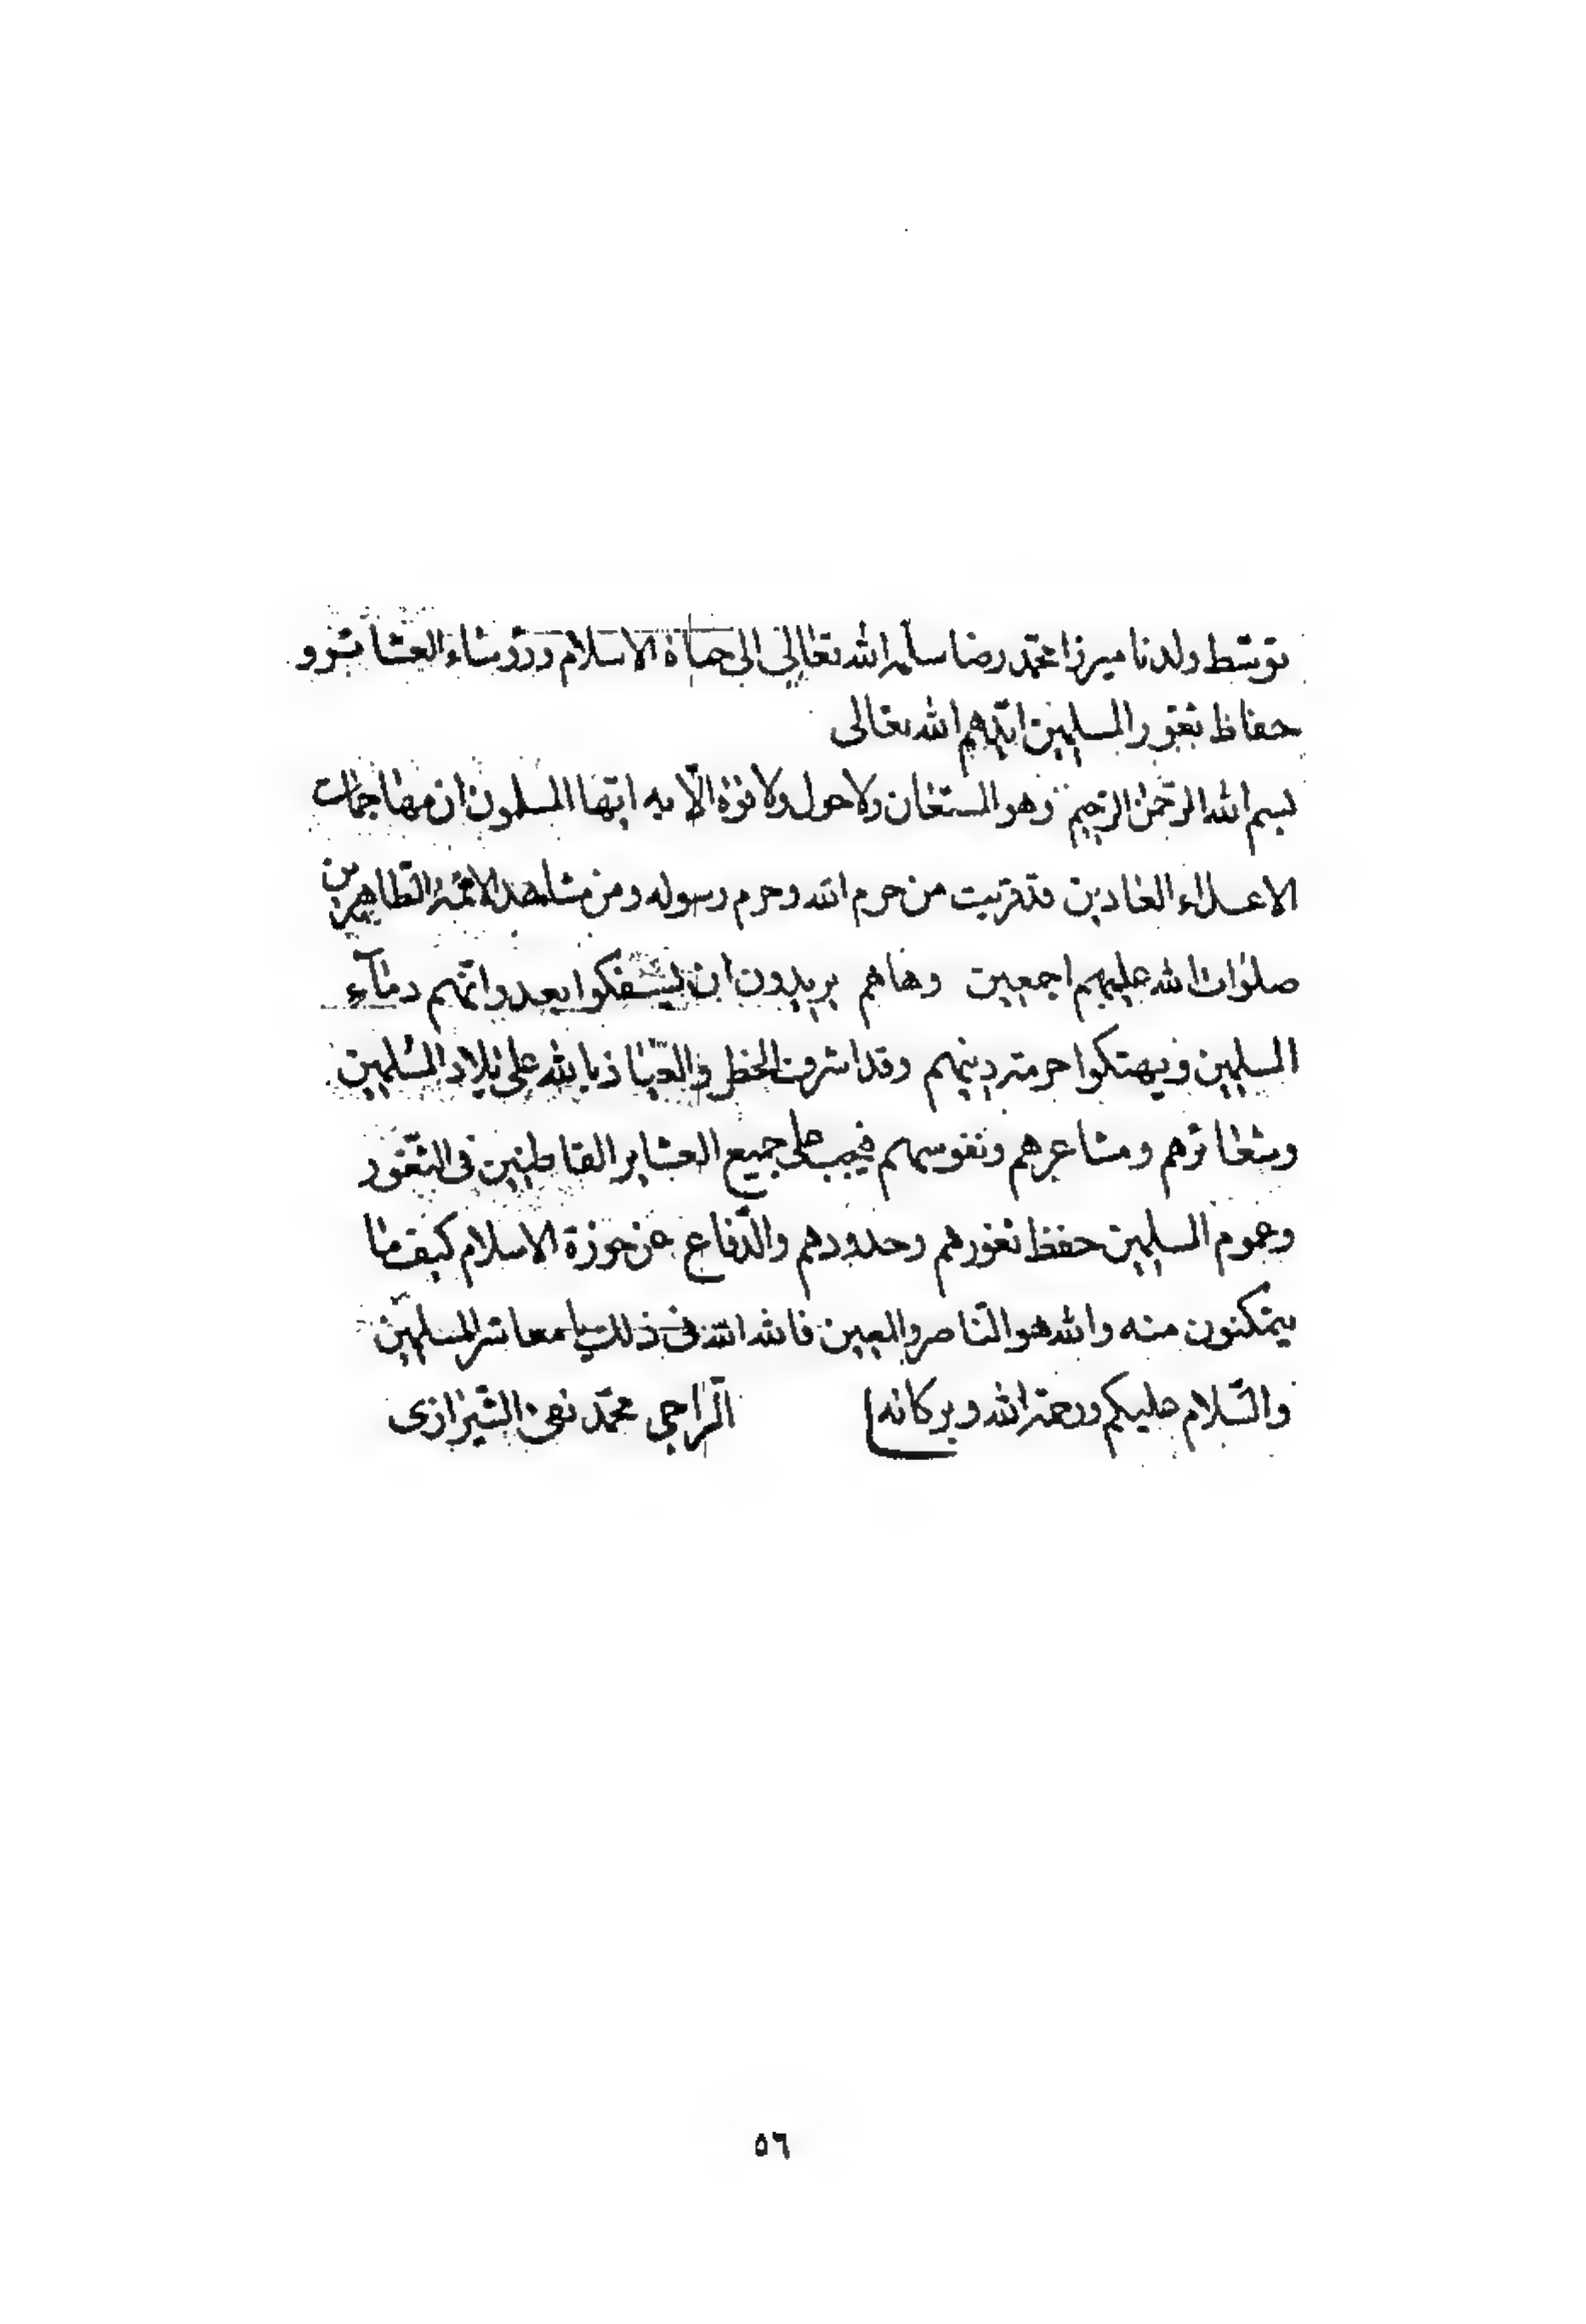 توسّط ولدنا ميرزا محمّد رضا سلّمه الله تعالى الى حماة الاسلام ورؤساء العشائر و
حفاظ ثغور المسلمين ايّدهم الله تعالى
بسم الله الرّحمن الرّحيم وهو المستعان ولا حول ولا قوّة الّا به ايّها المسلمون ان مهاجمات
الاعداء العادين قد قربت من حرم الله وحرم رسوله ومن مشاهد الائمّة الطّاهرين
صلوات الله عليهم اجمعين وهاهم يريدون ان يسفكوا بعدوانهم دماء
المسلمين ويهتكوا حرمة دينهم وقد اشرف الخطر والعياذ بالله على بلاد المسلمين
وشعائرهم ومشاعرهم ونفوسهم فيجب على جميع العشاير القاطنين فى الثّغور
وعموم المسلمين حفظ ثغورهم وحدودهم والدّفاع عن حوزة الاسلام كيف ما
يتمكنون منه والله هو النّاصر والمعين فالله الله فى ذلك يا معاشر المسلمين
والسّلام عليكم ورحمة الله وبركاته الرّاجي محمّد تقى الشّيرازى
٥٦